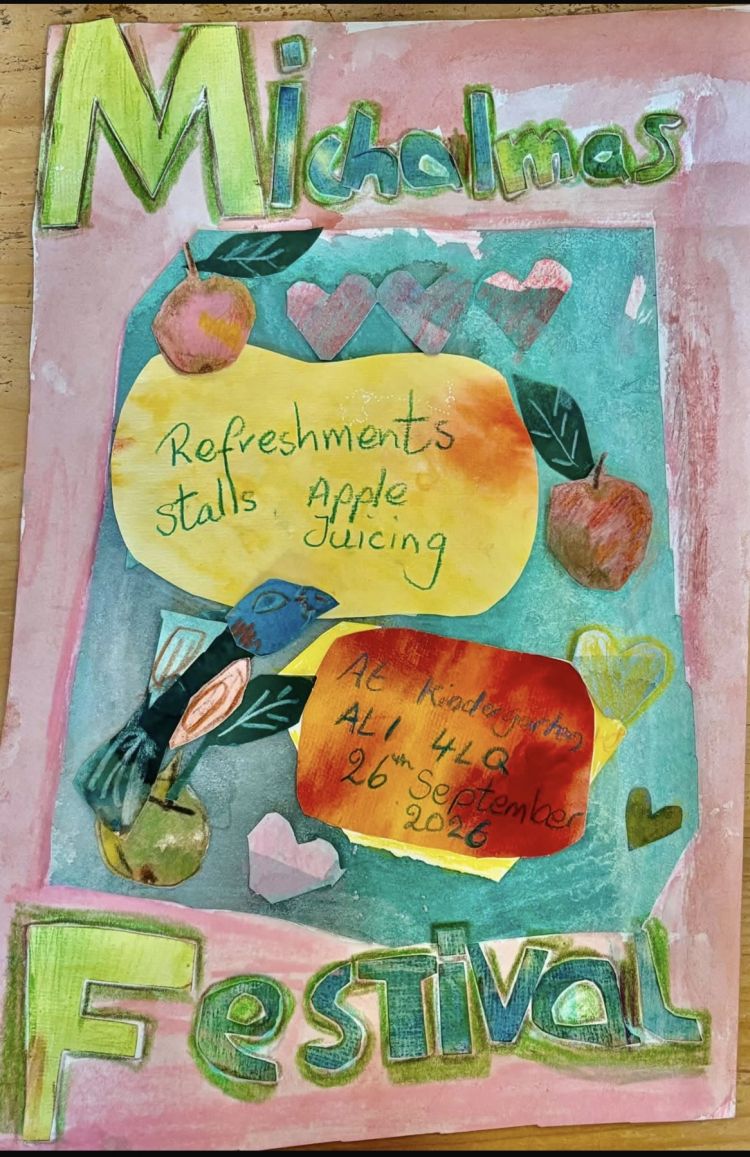 Michalmas
Refreshments
stalls. Apple
Juicing
At Kindergarten
AL1 4LQ
26th September
2026
Festival